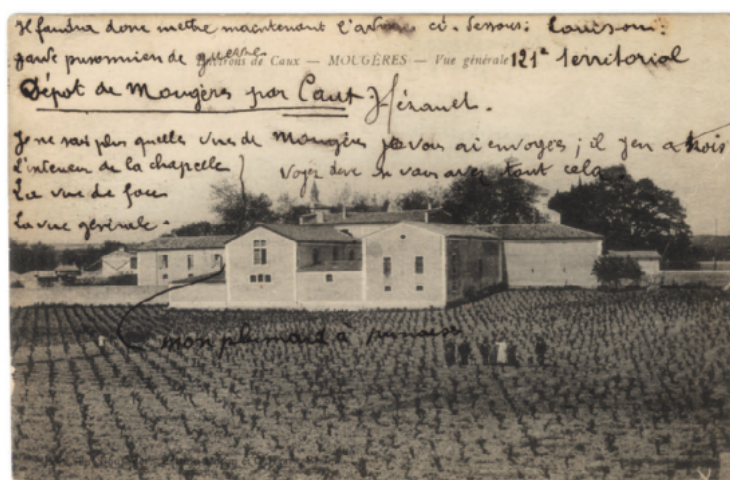 Il faudra donc mettre maintenant l'adresse ci-dessous: Louison:
garde prisonnier de guerre 121e Territorial
Environs de Caux — MOUGÈRES — Vue générale
Dépôt de Mougères par Caux Hérault.
Je ne sais plus quelles vues de Mougères je vous ai envoyées ; il y en a trois
L'intérieur de la chapelle } Voyez donc si vous avez tout cela
La vue de face
La vue générale -
mon plumard à